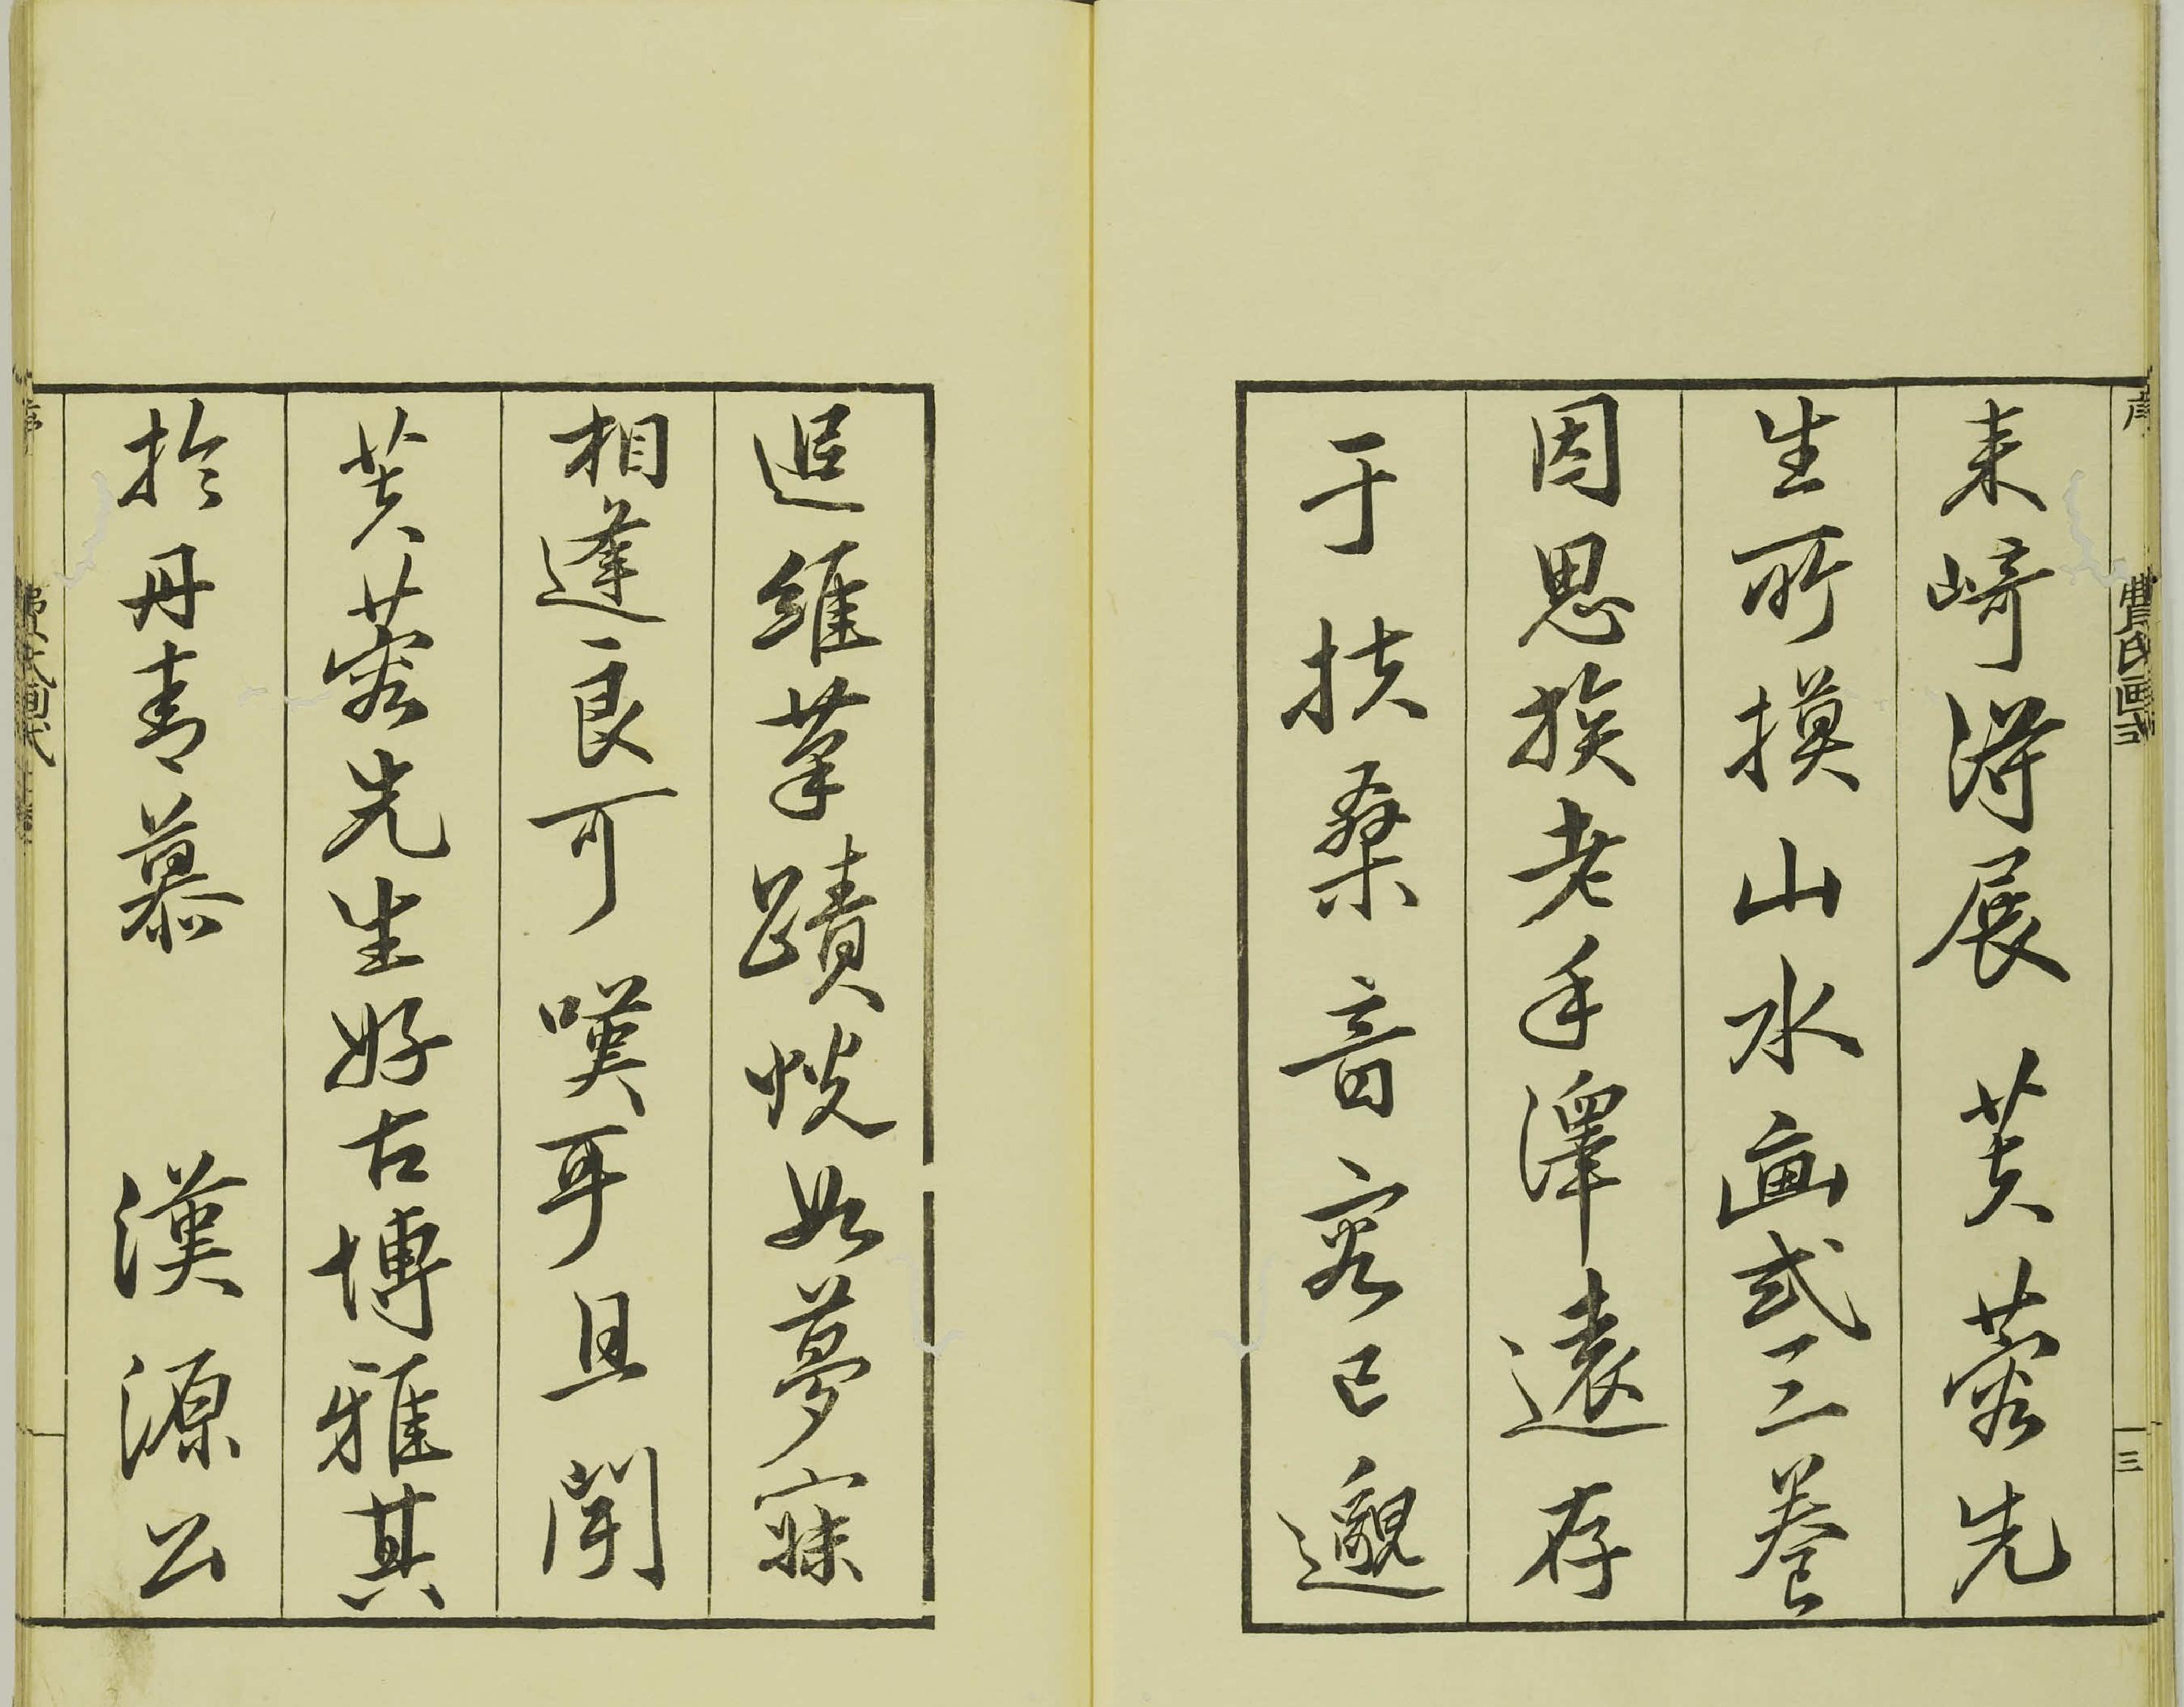 序 費氏画式 三
来崎得展芙蓉先
生所摸山水画式三巻
因思族老手澤遠存
于扶桑音容已邈
追維筆蹟恍如夢寐
相逢良可嘆耳且聞
芙蓉先生好古博雅其
於丹青慕 漢源公